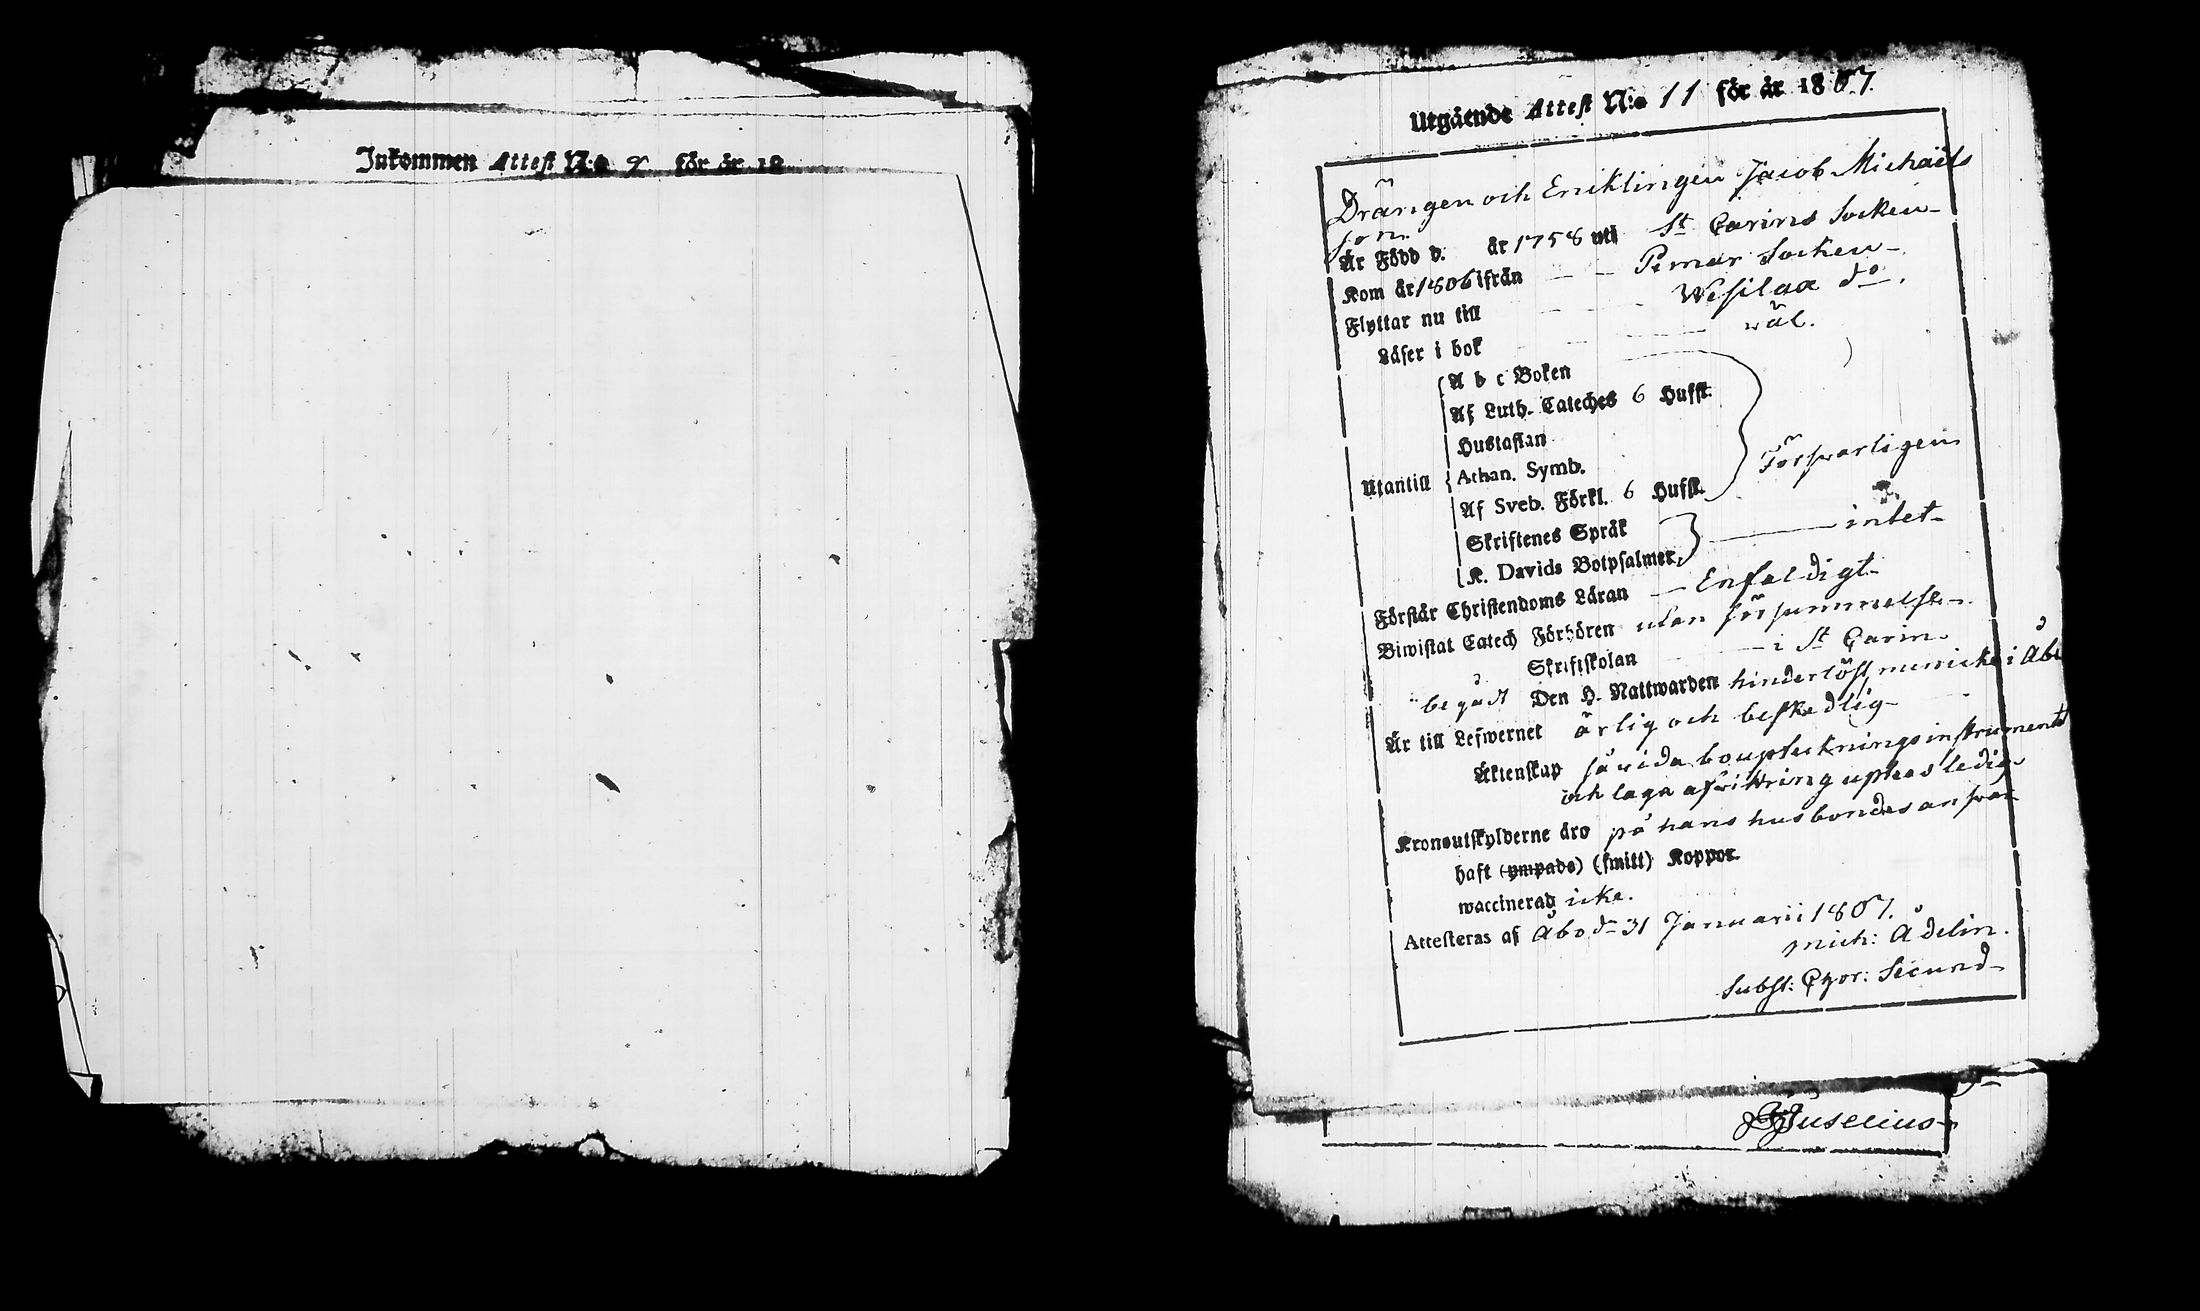 Inkommen Attest N:o 9 för år 18
Utgående Attest N:o 11 för år 1807.
Drängen och Enklingen Jacob Michaels
son
Är Född d. år 1758 uti St Carins Socken
Kom år 1806 ifrån Pemar Socken
Flyttar nu till Wesilax do.
Läser i bok wäl.
A b c Boken
Af Luth. Cateches 6 Hufst.
Hustaflan
Utantill Athan. Symb. Försvarligen
Af Sveb. Förkl. 6 Hufst.
Skriftenes Språk intet
K. Davids Botpsalmer
Förstår Christendoms Läran Enfaldigt
Biwistat Catech Förhören utan försummelse
Skriftskolan i St Carin
begådt Den H. Nattwarden hinderlöst, men icke i Åbo
Är till Lefwernet ärlig och beskedlig
Äktenskap så vida boupteckningsinstrument
och laga afvittring uptees ledig
Kronoutskylderne äro på hans husbondes ansvar
haft (ympade) (smitt) Koppor.
waccinerad icke.
Attesteras af Åbo d. 31 Januarii 1807.
Mich: Ådelin.
Subst: Cpor: Secund